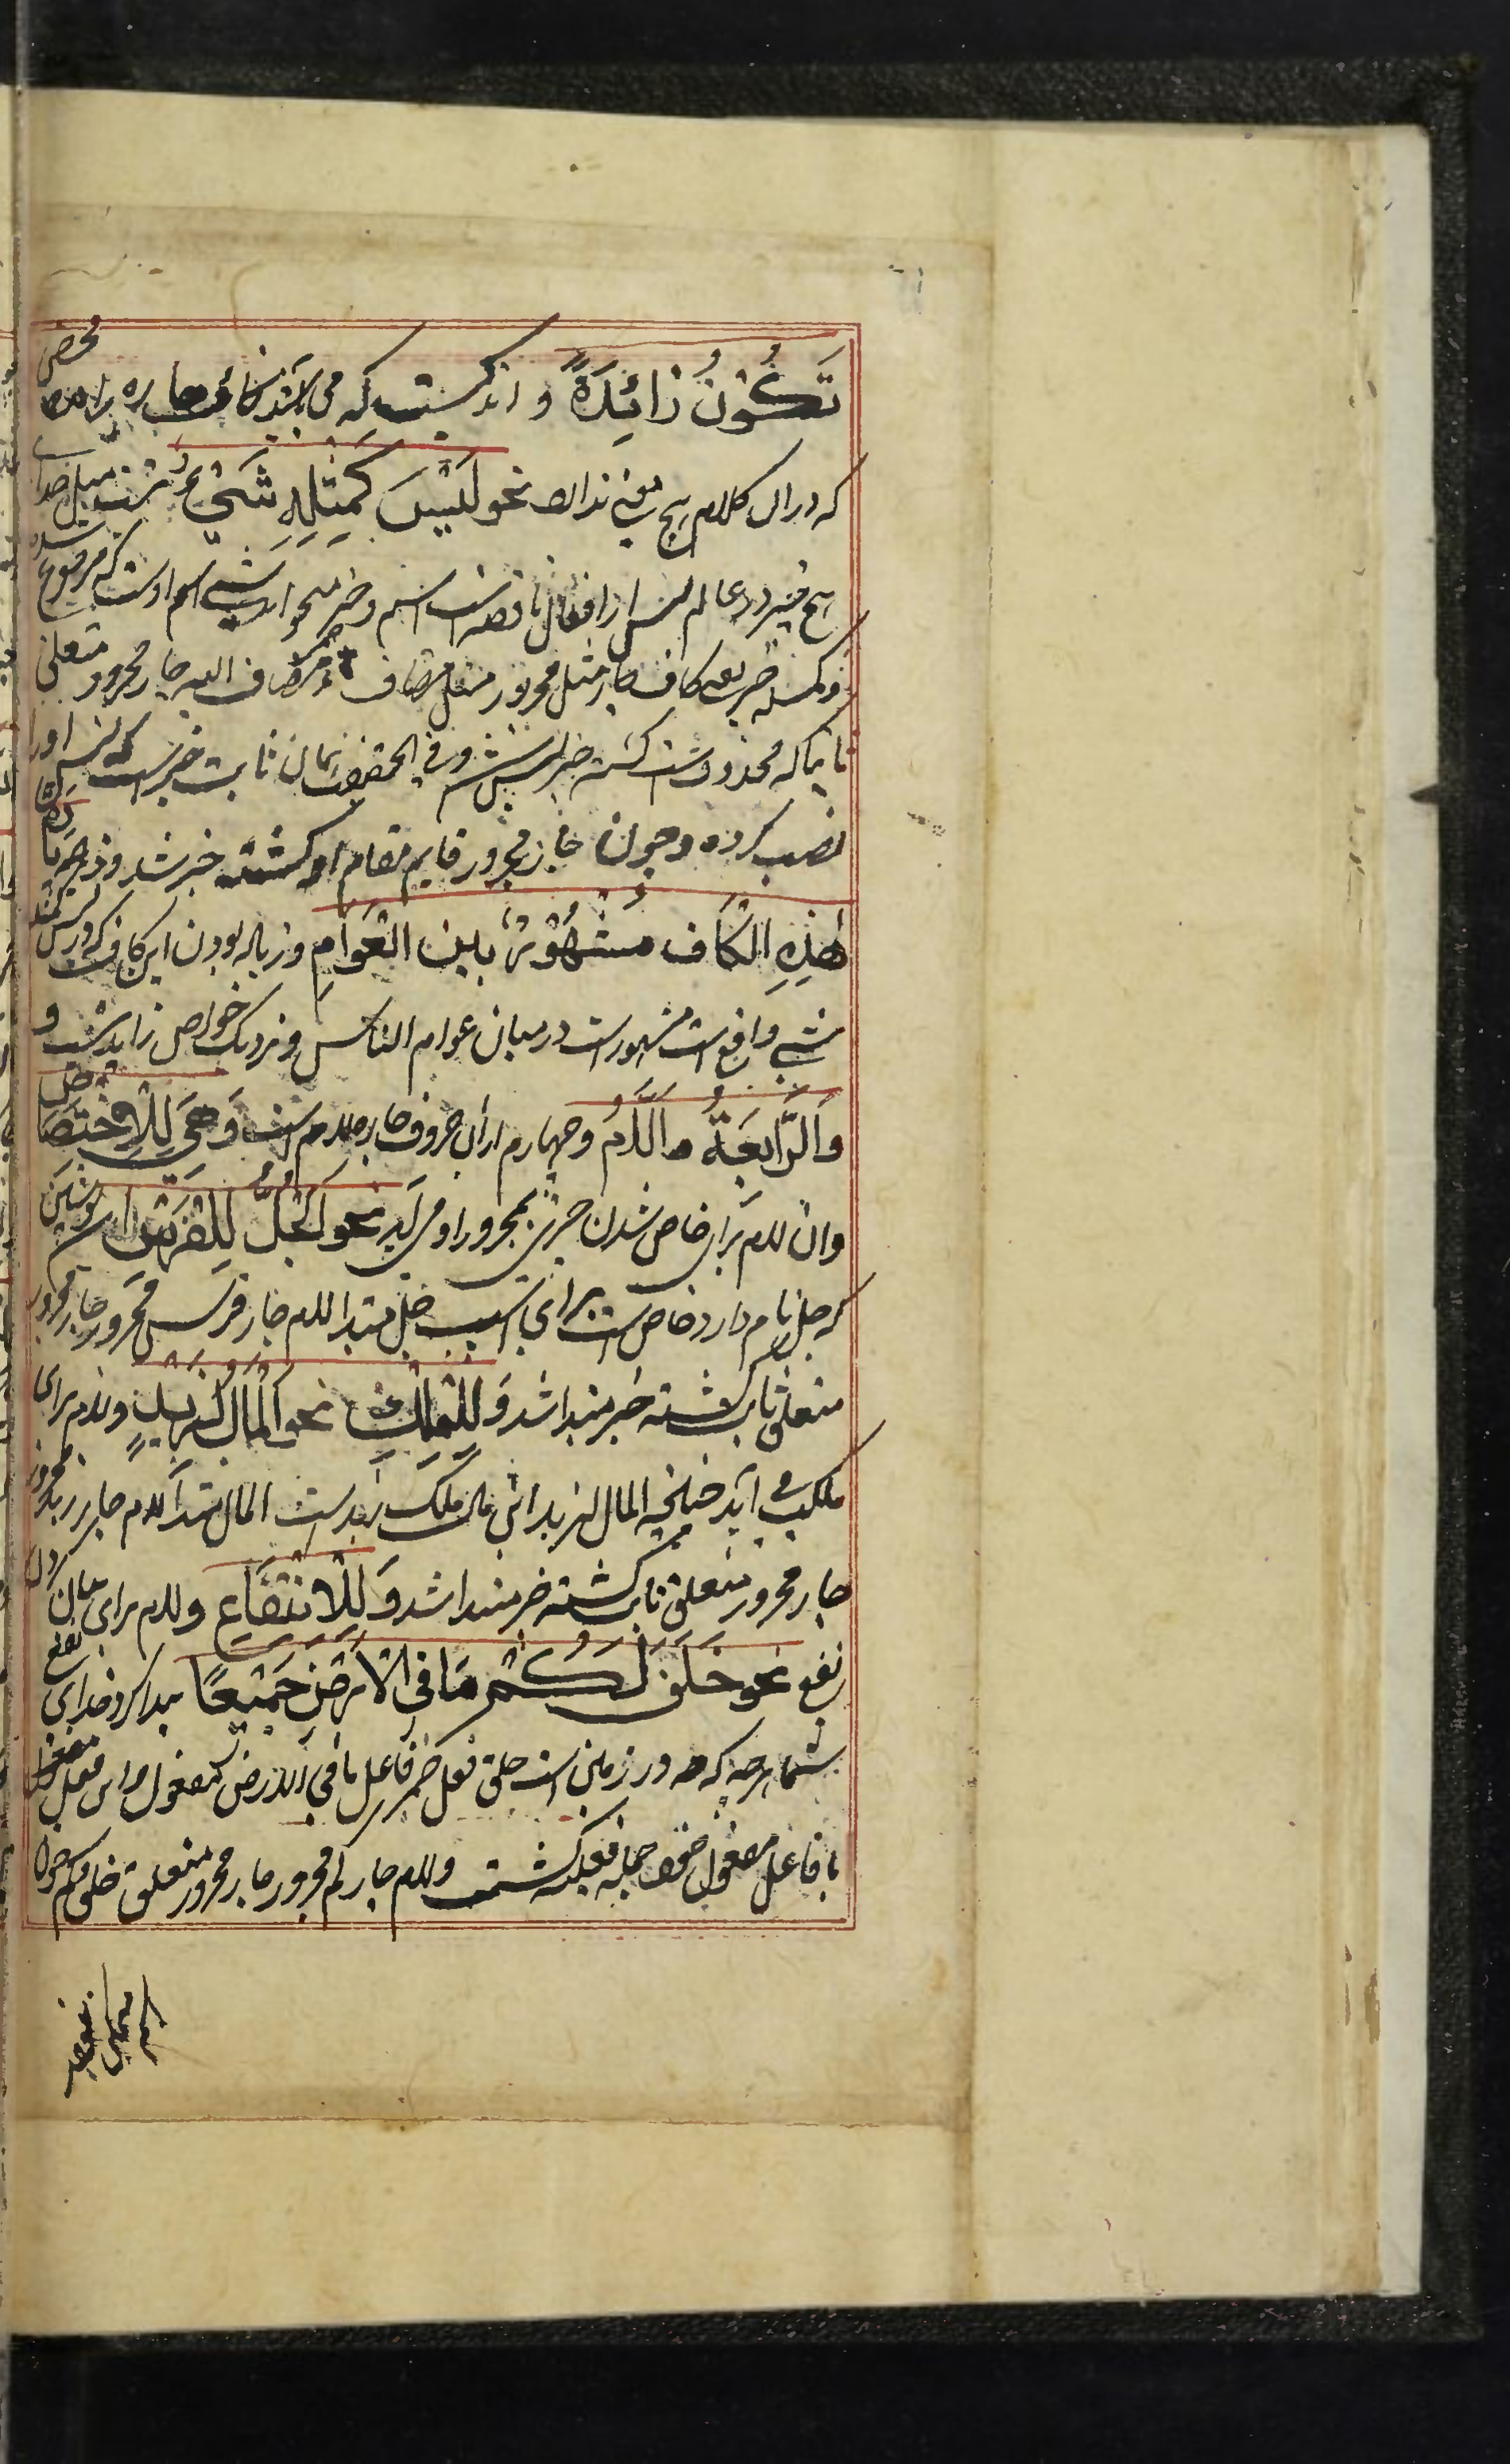 تَكُوْنُ زَائِدَةً و اندکیست که می باشد کاف جاره زائده محض
که دران کلام هیچ معنی ندارد نحو لَيْسَ كَمِثْلِهِ شَيْءٌ نیست مثل خدای
هیچ چیز در عالم لیس از افعال ناقصه است اسم و خبر میخواهد شیء اسم اوست که مرفوع شده
و کمثله خبر کاف جار مثل مجرور مثل مضاف ه مضاف الیه جار مجرور متعلق
ثابتا که محذوف است گشته خبر لیس شد و فی الحقیقت همان ثابت خبرست که لیس او را
نصب کرده و چون جار مجرور قایم مقام او گشته خبر شد و زیادة
هٰذِهِ الْكَاف مَشْهُوْرٌ بَيْنَ الْعَوَامِ و زیاده بودن این کاف که در لیس کمثله
شیء واقع است مشهورست در میان عوام الناس و نزدیک خواص زاید نیست و
وَالرَّابِعَةُ اَللَّامُ و چهارم ازان حروف جاره لام است وَهِيَ لِلْاِخْتِصَاصِ
وان لام برای خاص شدن چیزی بمجرور او می آید نحو اَلْجُلُّ لِلْفَرَسِ این پوشش
که جل نام دارد خاص است برای اسپ جل مبتدا لام جار فرس مجرور جار مجرور
متعلق ثابت گشته خبر مبتدا شد وَ لِلتَّمْلِيْكِ نحو اَلْمَالُ لِزَيْدٍ و لام برای
ملکیت می آید چنانچه المال لزید این مال ملک زیدست المال مبتدا لام جار زید مجرور
جار مجرور متعلق ثابت گشته خبر مبتدا شد وَ لِلْاِنْتِفَاعِ و لام برای بیان کردن
نفع نحو خَلَقَ لَكُمْ مَا فِي الْاَرْضِ جَمِيْعًا پیدا کرد خدای نفع
شما هرچه که در زمین است خلق فعل ضمیر فاعل ما فی الارض مفعول و این فعل
با فاعل مفعول خود جمله فعلیه گشت و لام جار کم مجرور جار مجرور متعلق خلق